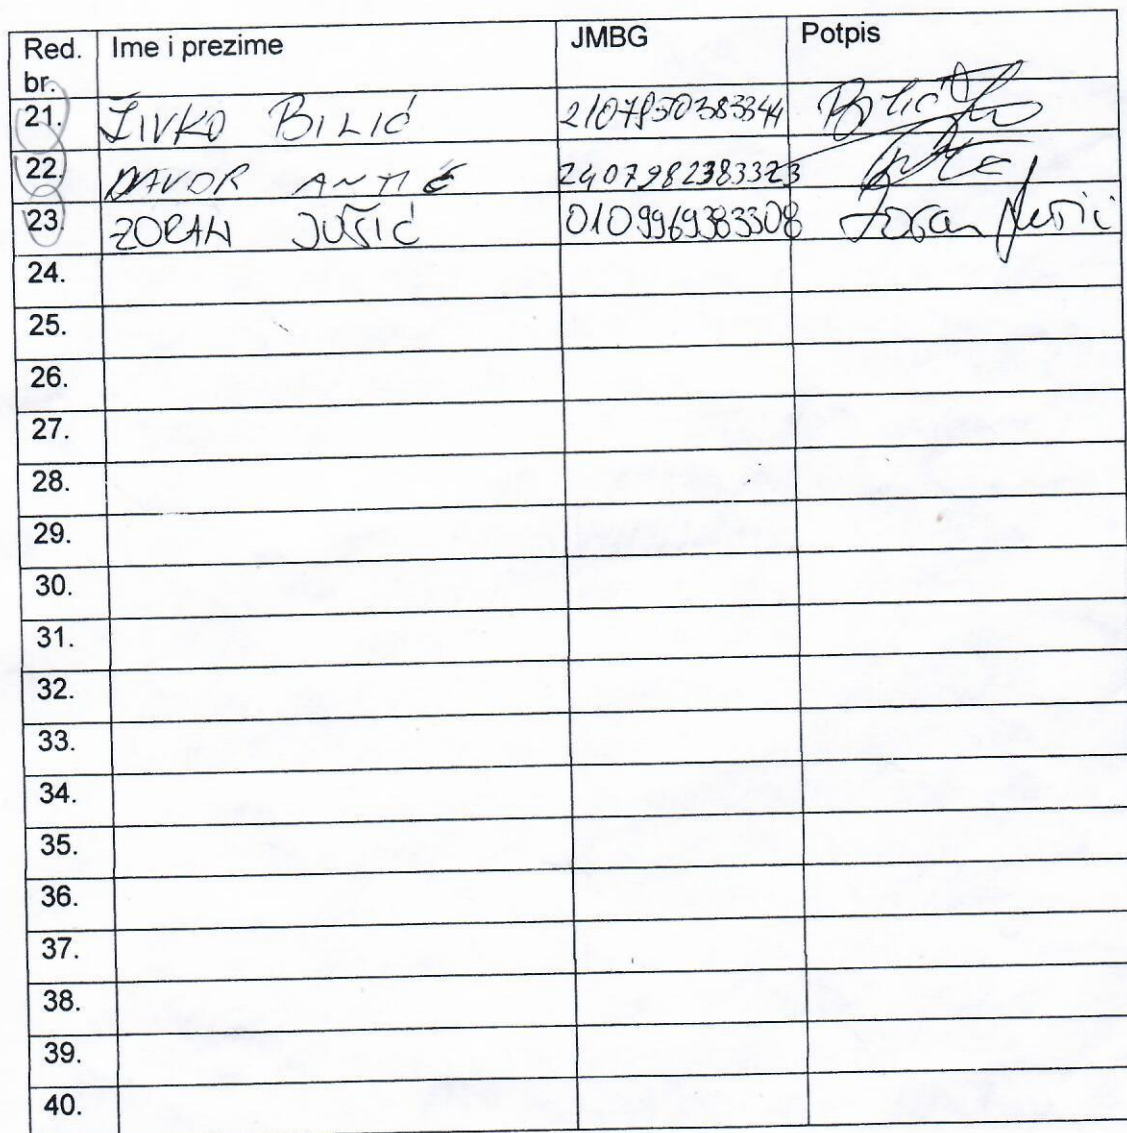 Red. br. Ime i prezime JMBG Potpis
21. ŽIVKO BILIĆ 2107950383344 Bilić
22. DAVOR ANTIĆ 2407982383323
23. ZORAN JUŠIĆ 0109969383308 Zoran Jušić
24.
25.
26.
27.
28.
29.
30.
31.
32.
33.
34.
35.
36.
37.
38.
39.
40.